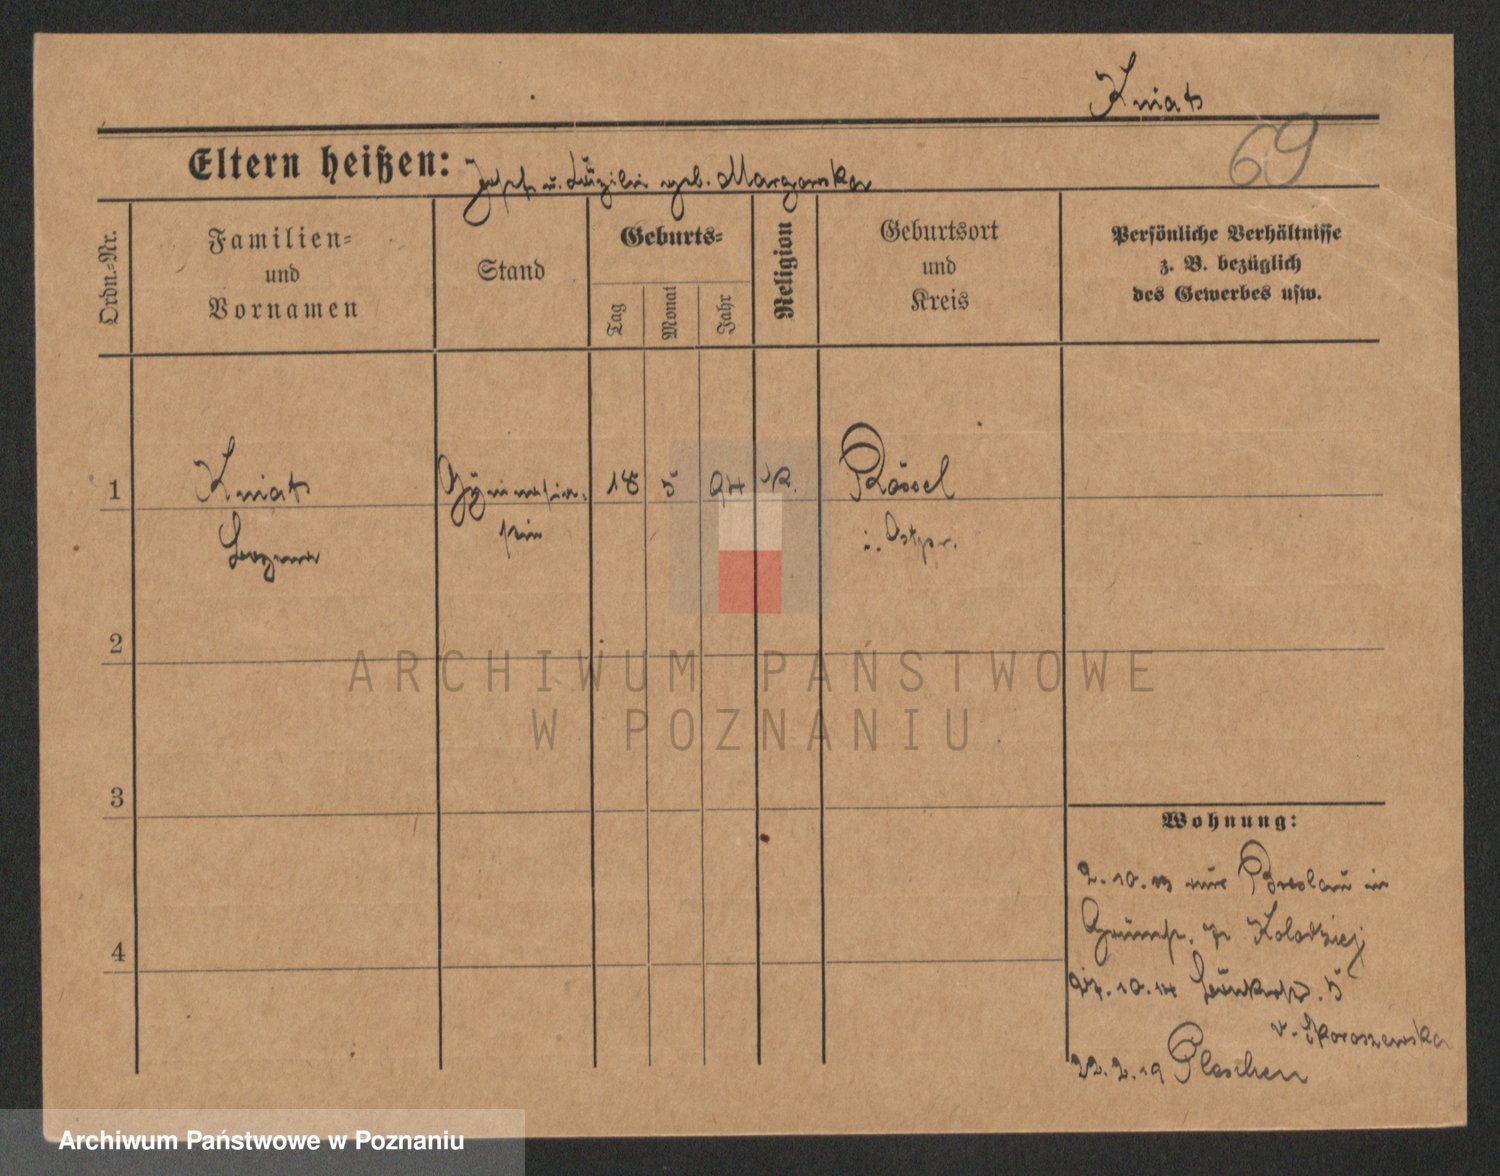 Kniat
69
Eltern heißen: Joseph u. Cäzilie geb. Margowska
Ordn.=Nr.
Familien=
und
Vornamen
Stand
Geburts=
Tag
Monat
Jahr
Religion
Geburtsort
und
Kreis
Persönliche Verhältnisse
z. B. bezüglich
des Gewerbes usw.
1
Kniat
18 5 94 K.
Rössel
i. Ostpr.
2
3
4
Wohnung:
2.10.13 aus Breslau in
Kolodziej
10.14 5
v. Skoroszewska
22.2.19 Pleschen
ARCHIWUM PAŃSTWOWE
W POZNANIU
Archiwum Państwowe w Poznaniu